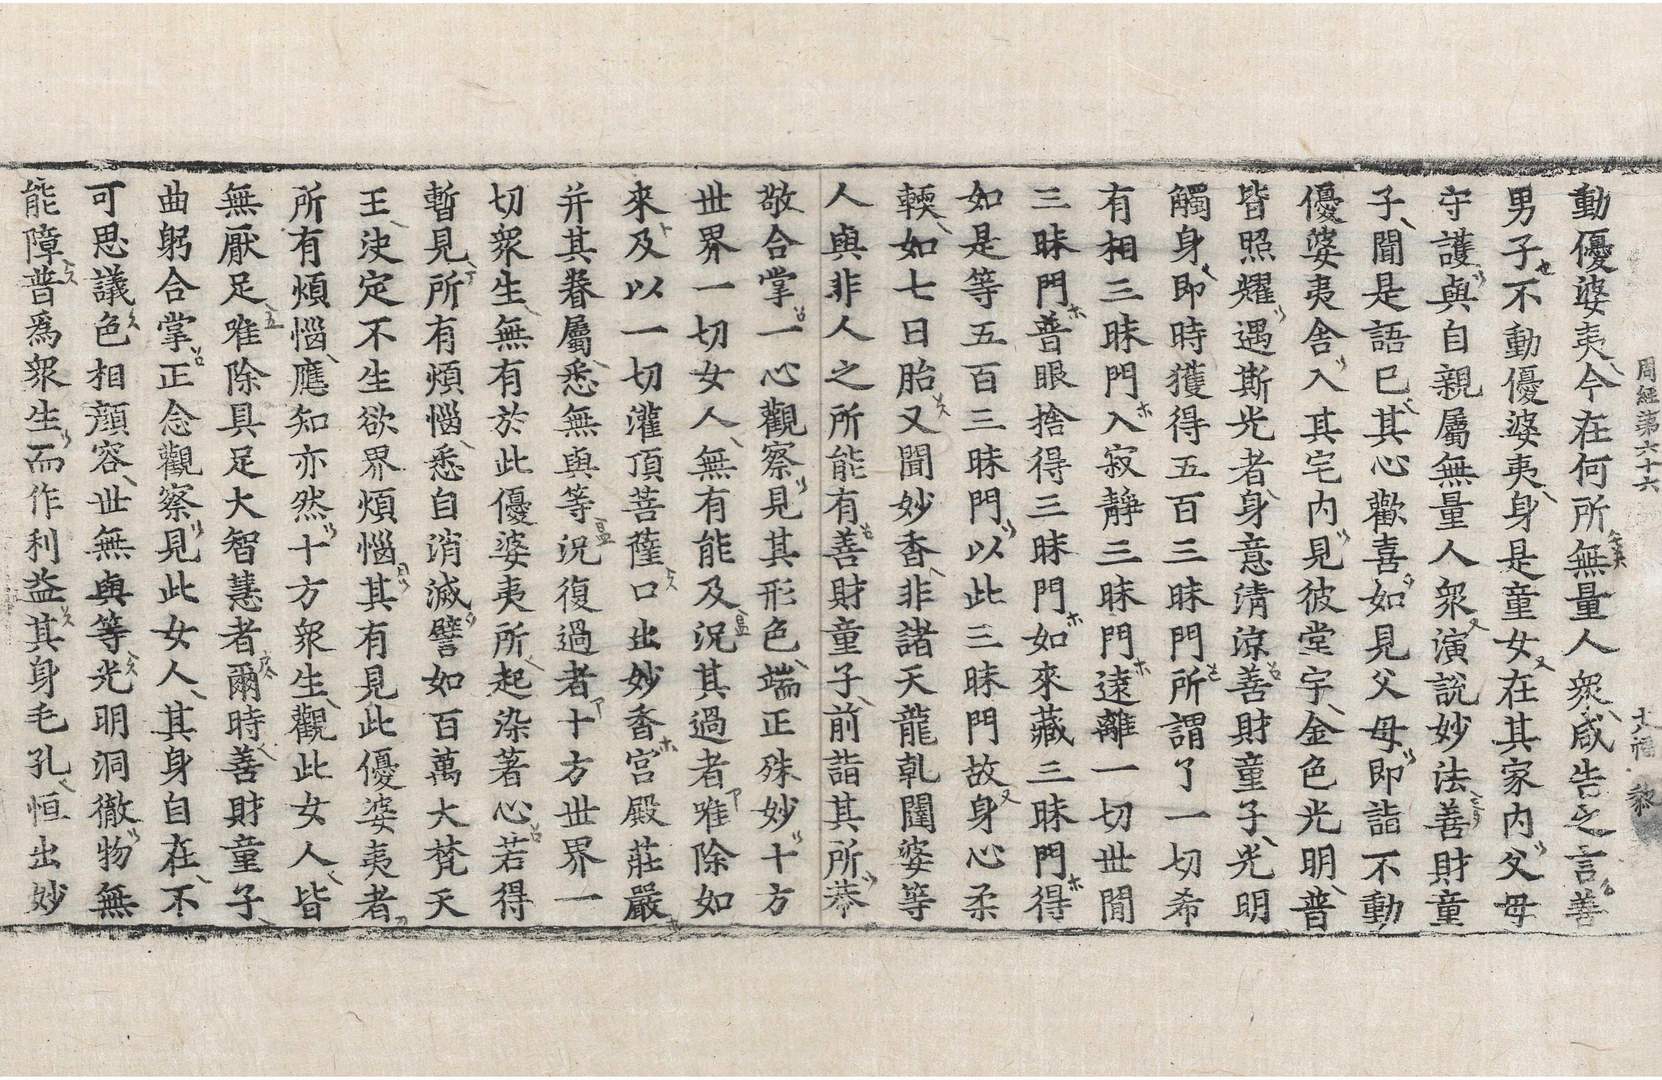 周經第六十六　十六幅　黎
動優婆夷今在何所無量人衆咸告之言善
男子不動優婆夷身是童女在其家内父母
守護與自親屬無量人衆演說妙法善財童
子聞是語已其心歡喜如見父母即詣不動
優婆夷舍入其宅内見彼堂宇金色光明普
皆照耀遇斯光者身意清涼善財童子光明
觸身即時獲得五百三昧門所謂了一切希
有相三昧門入寂靜三昧門遠離一切世間
三昧門普眼捨得三昧門如來藏三昧門得
如是等五百三昧門以此三昧門故身心柔
輭如七日胎又聞妙香非諸天龍乹闥婆等
人與非人之所能有善財童子前詣其所恭
敬合掌一心觀察見其形色端正殊妙十方
世界一切女人無有能及況其過者唯除如
來及以一切灌頂菩薩口出妙香宮殿莊嚴
并其眷屬悉無與等況復過者十方世界一
切衆生無有於此優婆夷所起染著心若得
暫見所有煩惱悉自消滅譬如百萬大梵天
王決定不生欲界煩惱其有見此優婆夷者
所有煩惱應知亦然十方衆生觀此女人皆
無厭足唯除具足大智慧者爾時善財童子
曲躬合掌正念觀察見此女人其身自在不
可思議色相顔容世無與等光明洞徹物無
能障普爲衆生而作利益其身毛孔恒出妙